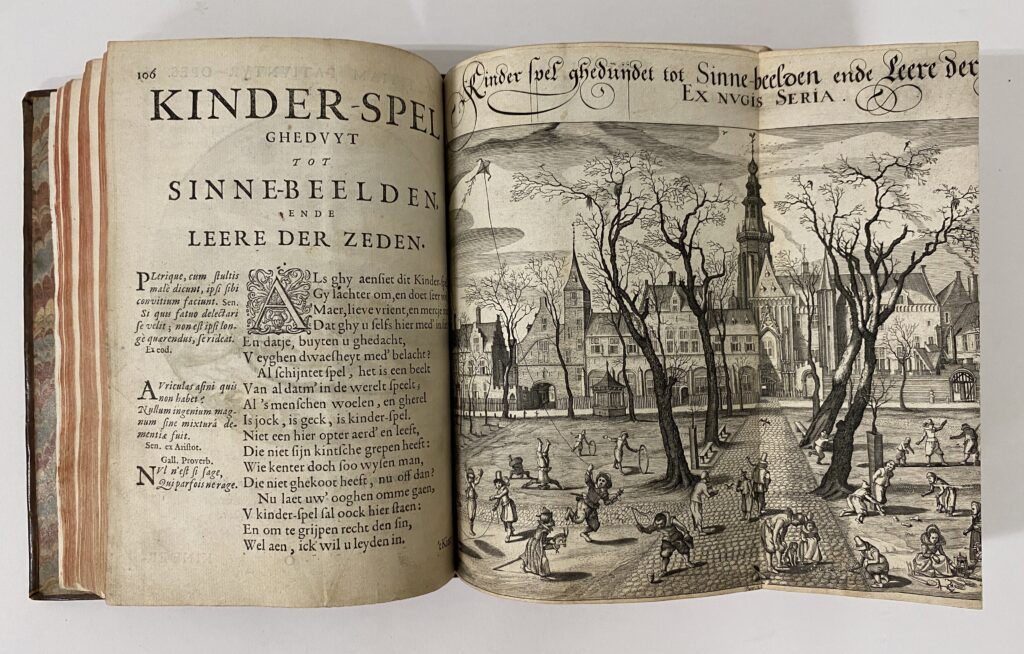 106
KINDER-SPEL
GHEDVYT
TOT
SINNE-BEELDEN,
ENDE
LEERE DER ZEDEN.
PLerique, cum stultis
malè dicunt, ipsi sibi
convitium faciunt. Sen.
Si quis fatuo delectari
se velit; non est ipsi lon-
gè quærendus, se rideat.
Ex eod.
AVriculas asini quis
non habet?
Nullum ingenium mag-
num sine mixturâ de-
mentiæ fuit.
Sen. ex Aristot.
Gall. Proverb.
NVl n'est si sage,
Qui parfois ne rage.
ALs ghy aensiet dit Kinder-
Gy lachter om, en doet seer
Maer, lieve vrient, en
Dat ghy u selfs hier med'
En datje, buyten u ghedacht,
V eyghen dwaesheyt med' belacht?
Al schijntet spel, het is een beelt
Van al datm' in de werelt speelt;
Al 's menschen woelen, en gherel
Is jock, is geck, is kinder-spel.
Niet een hier opter aerd' en leeft,
Die niet sijn kintsche grepen heeft:
Wie kenter doch soo wysen man,
Die niet ghekoot heeft, nu off dan?
Nu laet uw' ooghen omme gaen,
V kinder-spel sal oock hier staen:
En om te grijpen recht den sin,
Wel aen, ick wil u leyden in.
Kinder spel ghedüÿdet tot Sinne-beelden ende Leere der
EX NVGIS SERIA.